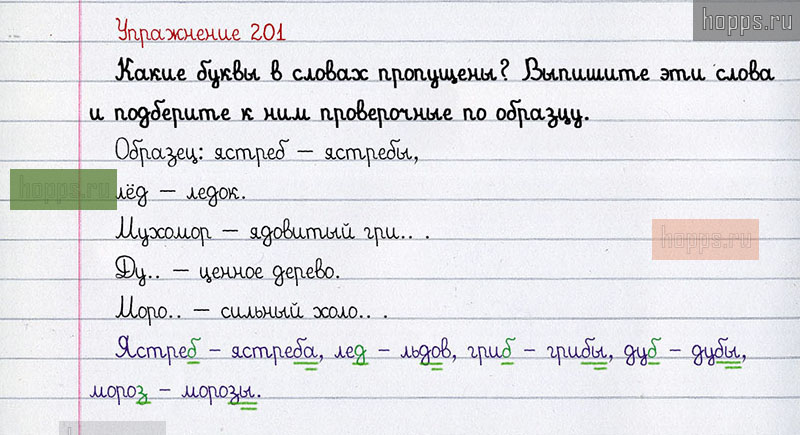 hopps.ru
Упражнение 201
Какие буквы в словах пропущены? Выпишите эти слова
и подберите к ним проверочные по образцу.
Образец: ястреб – ястребы,
hopps.ru
лёд – ледок.
Мухомор – ядовитый гри.. .
hopps.ru
Ду.. – ценное дерево.
Моро.. – сильный холо.. .
Ястреб – ястреба, лед – льдов, гриб – грибы, дуб – дубы,
мороз – морозы.